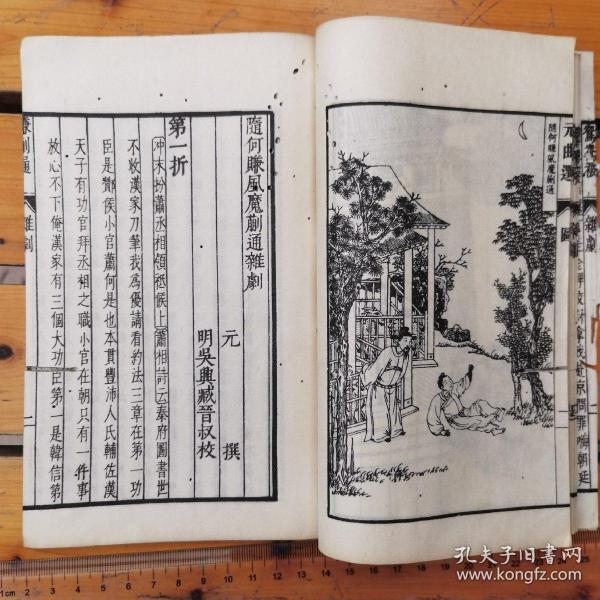 元曲選
圖
隨何賺風魔蒯通
隨何賺風魔蒯通雜劇
元 撰
明吳興臧晉叔校
第一折
沖末扮蕭丞相領祗候上蕭相詩云秦府圖書世
不收漢家刀筆我為優請看約法三章在第一功
臣是酇侯小官蕭何是也本貫豐沛人氏輔佐漢
天子有功官拜丞相之職小官在朝只有一件事
放心不下俺漢家有三個大功臣第一是韓信第
蒯通
雜劇
一
雜劇
問罪
朝廷
孔夫子旧书网
www.kongfz.com